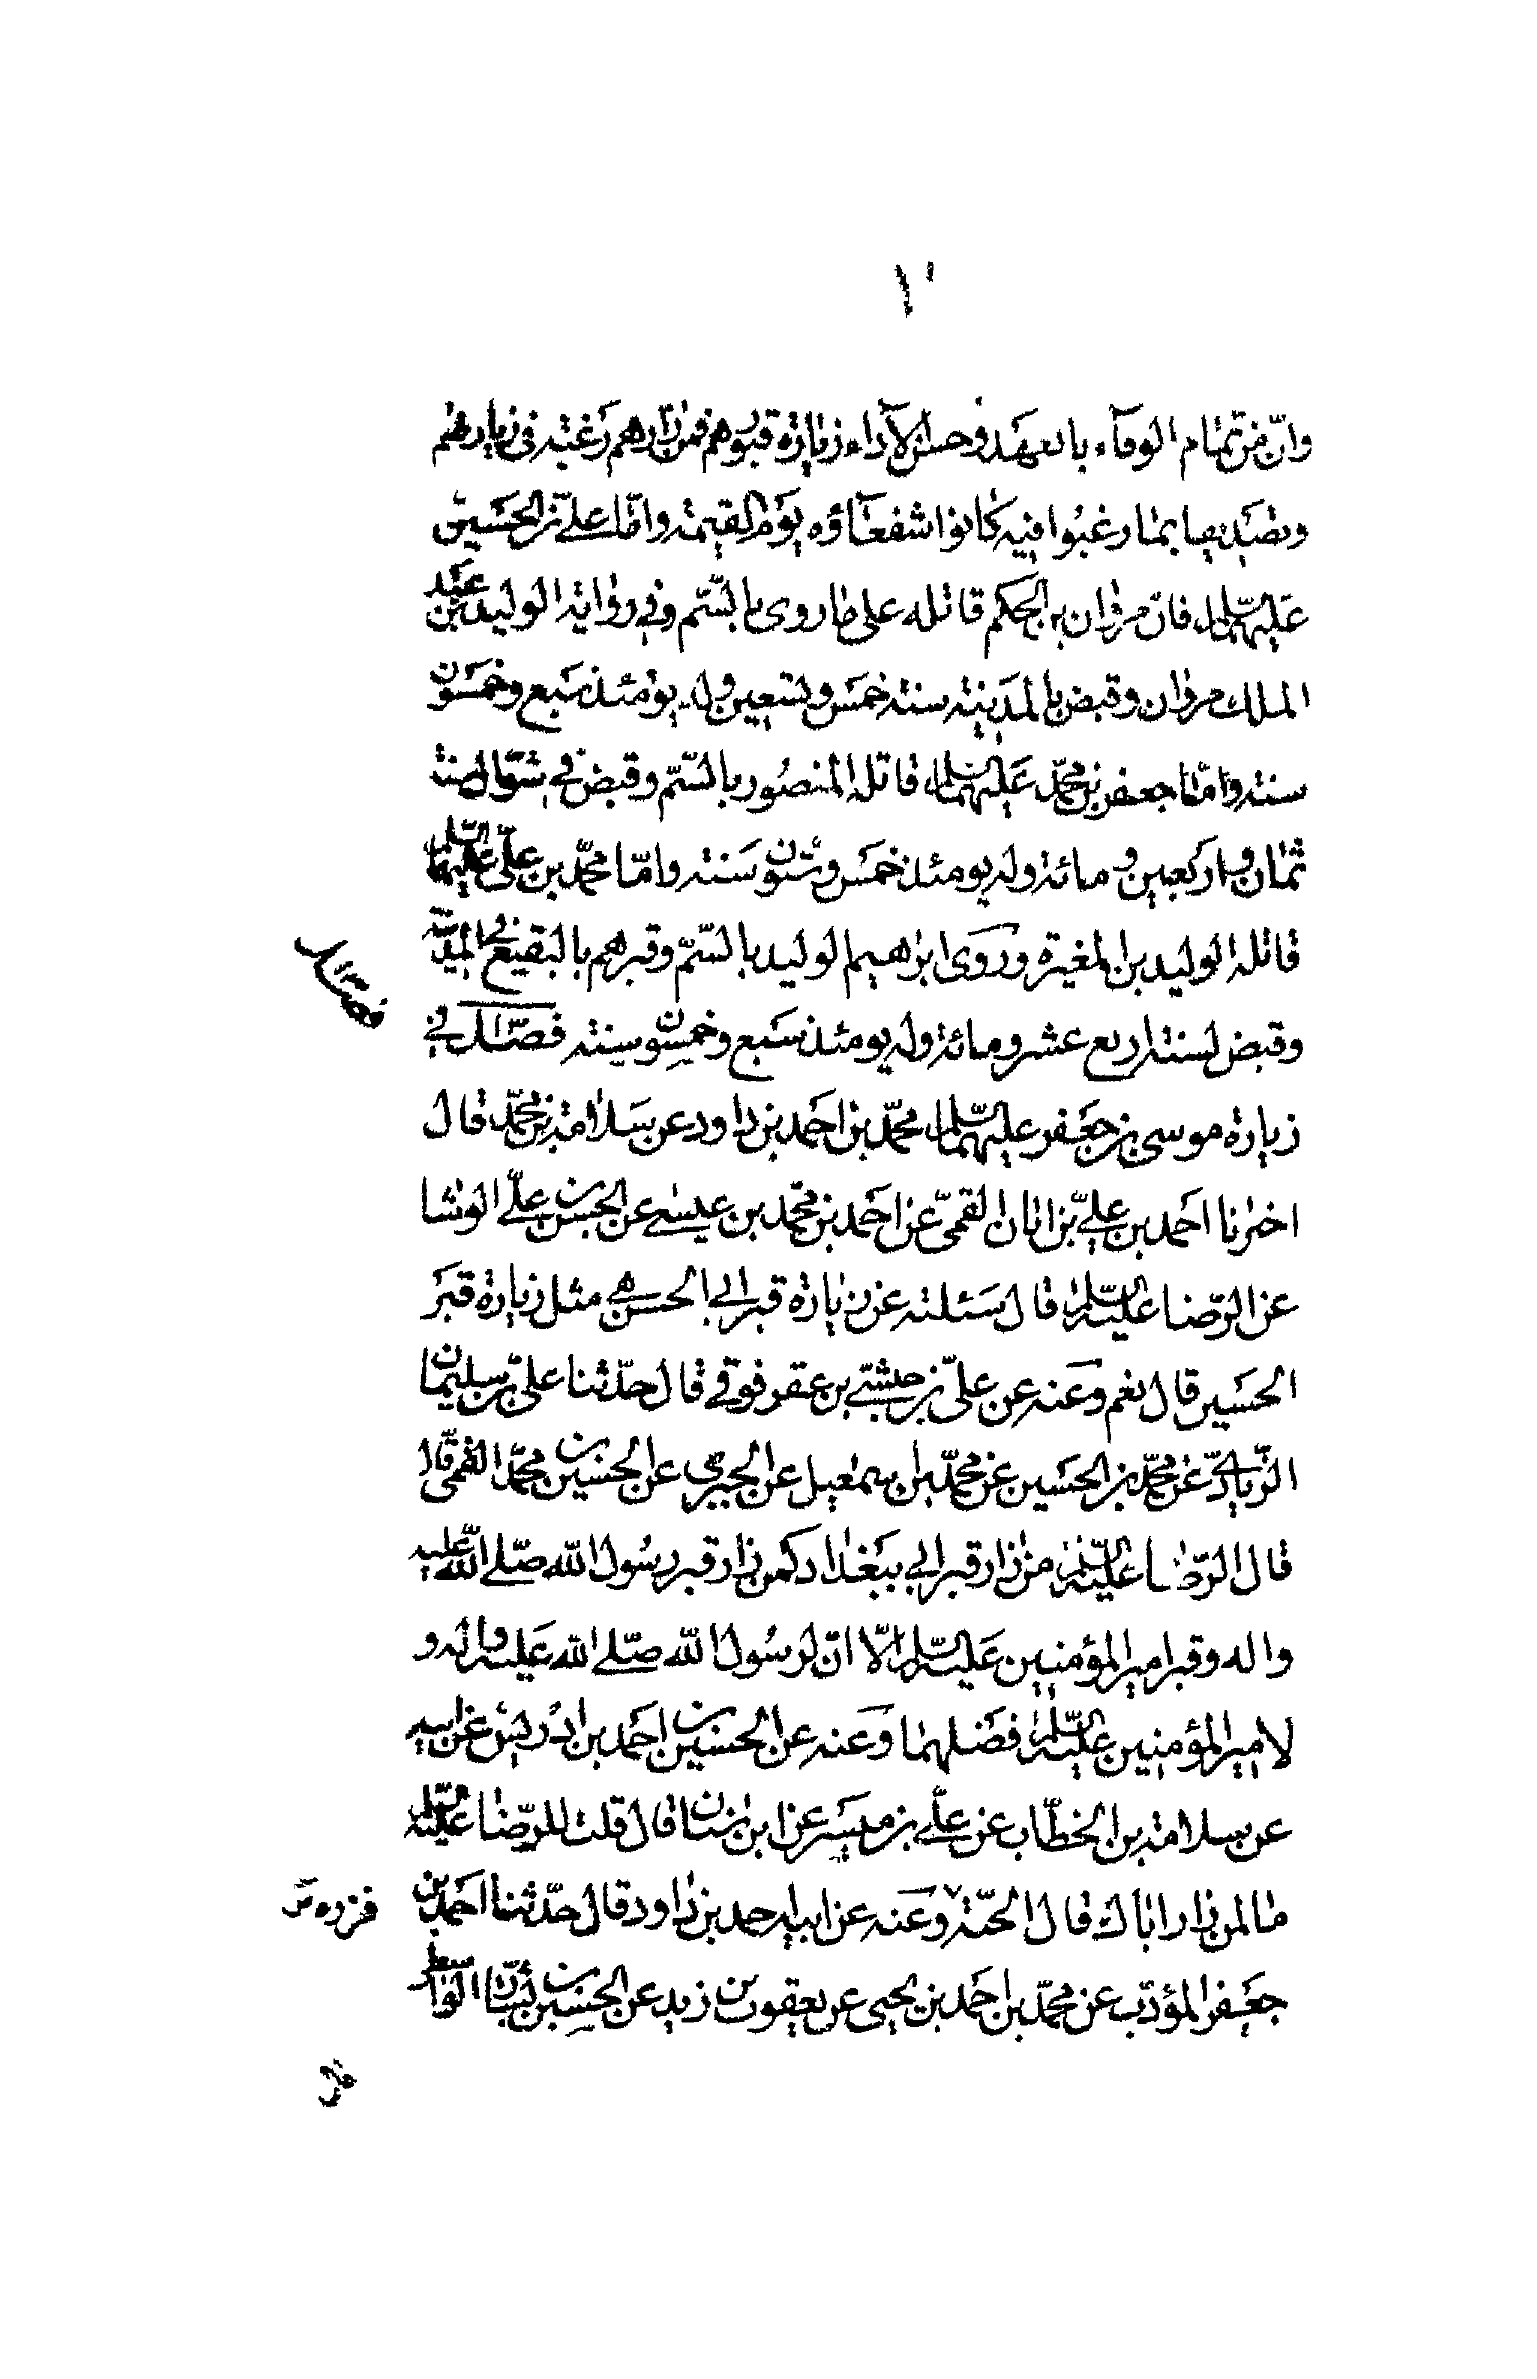 ١٠
وانّ من تمام الوفآء بالعهد وحسن الاداء زيارة قبورهم فمن زارهم رغبته في زيارتهم
وتصديقا بما رغبوا فيه كانوا شفعآؤه يوم القيمة وامّا على بن الحسين
عليهما السّلم فان مروان بن الحكم قاتله على ما روى بالسّم وفي رواية الوليد بن عبد
الملك مروان وقبض بالمدينة سنة خمس وتسعين وله يومئذ سبع وخمسون
سنة وامّا جعفر بن محمّد عليهما السلم قاتله المنصور بالسّم وقبض في شوّال سنة
ثمان واربعين ومائة وله يومئذ خمس وستون سنة وامّا محمّد بن علىّ عليهما السّلم
قاتله الوليد بن المغيرة وروى ابراهيم الوليد بالسّمّ وقبرهم بالبقيع في المدينة
وقبض لسنة اربع عشر ومائة وله يومئذ سبع وخمسون سنة فصّل في
زيارة موسى بن جعفر عليهما السّلم محمّد بن احمد بن داود عن سلامة بن محمّد قال
اخبرنا احمد بن علىّ بن ابان القمىّ عن احمد بن محمّد بن عيسى عن الحسن بن علىّ الوشا
عن الرّضا عليه السّلم قال سئلته عن زيارة قبر ابى الحسن هى مثل زيارة قبر
الحسين قال نعم وعنه عن علىّ بن حبشى بن عقرقوفى قال حدّثنا على بن سليمان
الزّيارىّ عن محمّد بن الحسين عن محمّد بن اسمعيل عن الجيرى عن الحسين بن محمّد القمىّ قال
قال الرّضا عليه السّلم من زار قبر ابى ببغداد كمن زار قبر رسول الله صلّى الله عليه
واله وقبر امير المؤمنين عليه السّلم الّا انّ لرسول الله صلّى الله عليه واله و
لامير المؤمنين عليه السّلم فضلهما وعنه عن الحسين بن احمد بن ادريس عن ابيه
عن سلامة بن الخطّاب عن علىّ بن ميسر عن ابن سنان قال قلت للرّضا عليه السّلم
ما لمن زار اباك قال الجنّة وعنه عن ابيه احمد بن داود قال حدّثنا احمد بن
جعفر المؤدّب عن محمّد بن احمد بن يحيى عن يعقوب بن زيد عن الحسين بن بشّار الواسطى